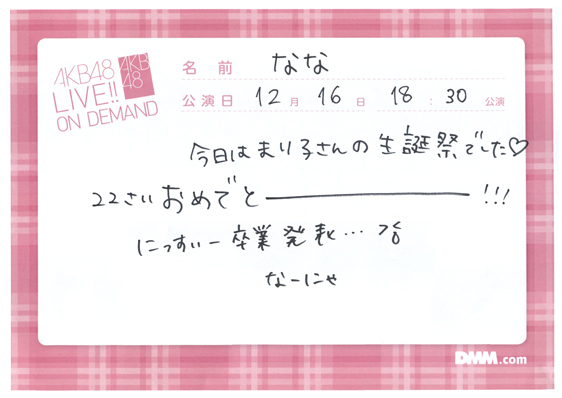 AKB48
LIVE!!
ON DEMAND
AKB
48
名前 なな
公演日 12月 16日 18:30 公演
今日はまり子さんの生誕祭でした♡
22さいおめでとーーー!!!
にっすぃー卒業発表…
なーにゃ
DMM.com